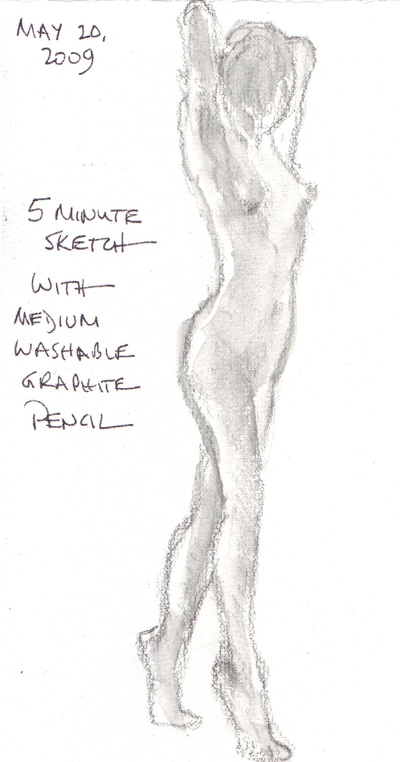 MAY 20,
2009
5 MINUTE
SKETCH
WITH
MEDIUM
WASHABLE
GRAPHITE
PENCIL